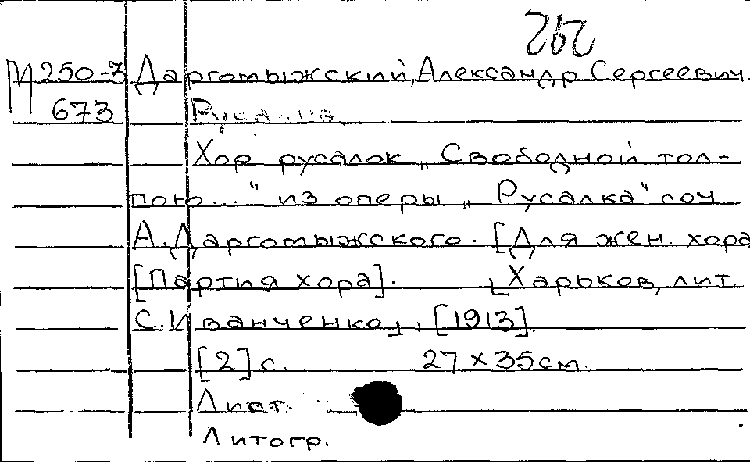 262
М 250-3 Даргомыжский, Александр Сергеевич.
673 Русалка
Хор русалок „Свободной тол-
пою..." из оперы „Русалка" соч
А. Даргомыжского. [Для жен. хора
[Партия хора]. [Харьков, лит.
С. Иванченко], [1913]
[2] с. 27 x 35 см.
Литогр.